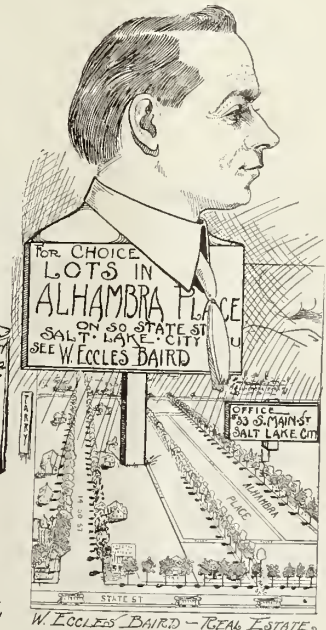 FOR CHOICE
LOTS IN
ALHAMBRA PLACE
ON SO STATE ST
SALT · LAKE · CITY U
SEE W. ECCLES BAIRD
OFFICE
33 S. MAIN ST
SALT LAKE CITY
TARRY
ALHAMBRA
PLACE
STATE ST
W. ECCLES BAIRD — REAL ESTATE.